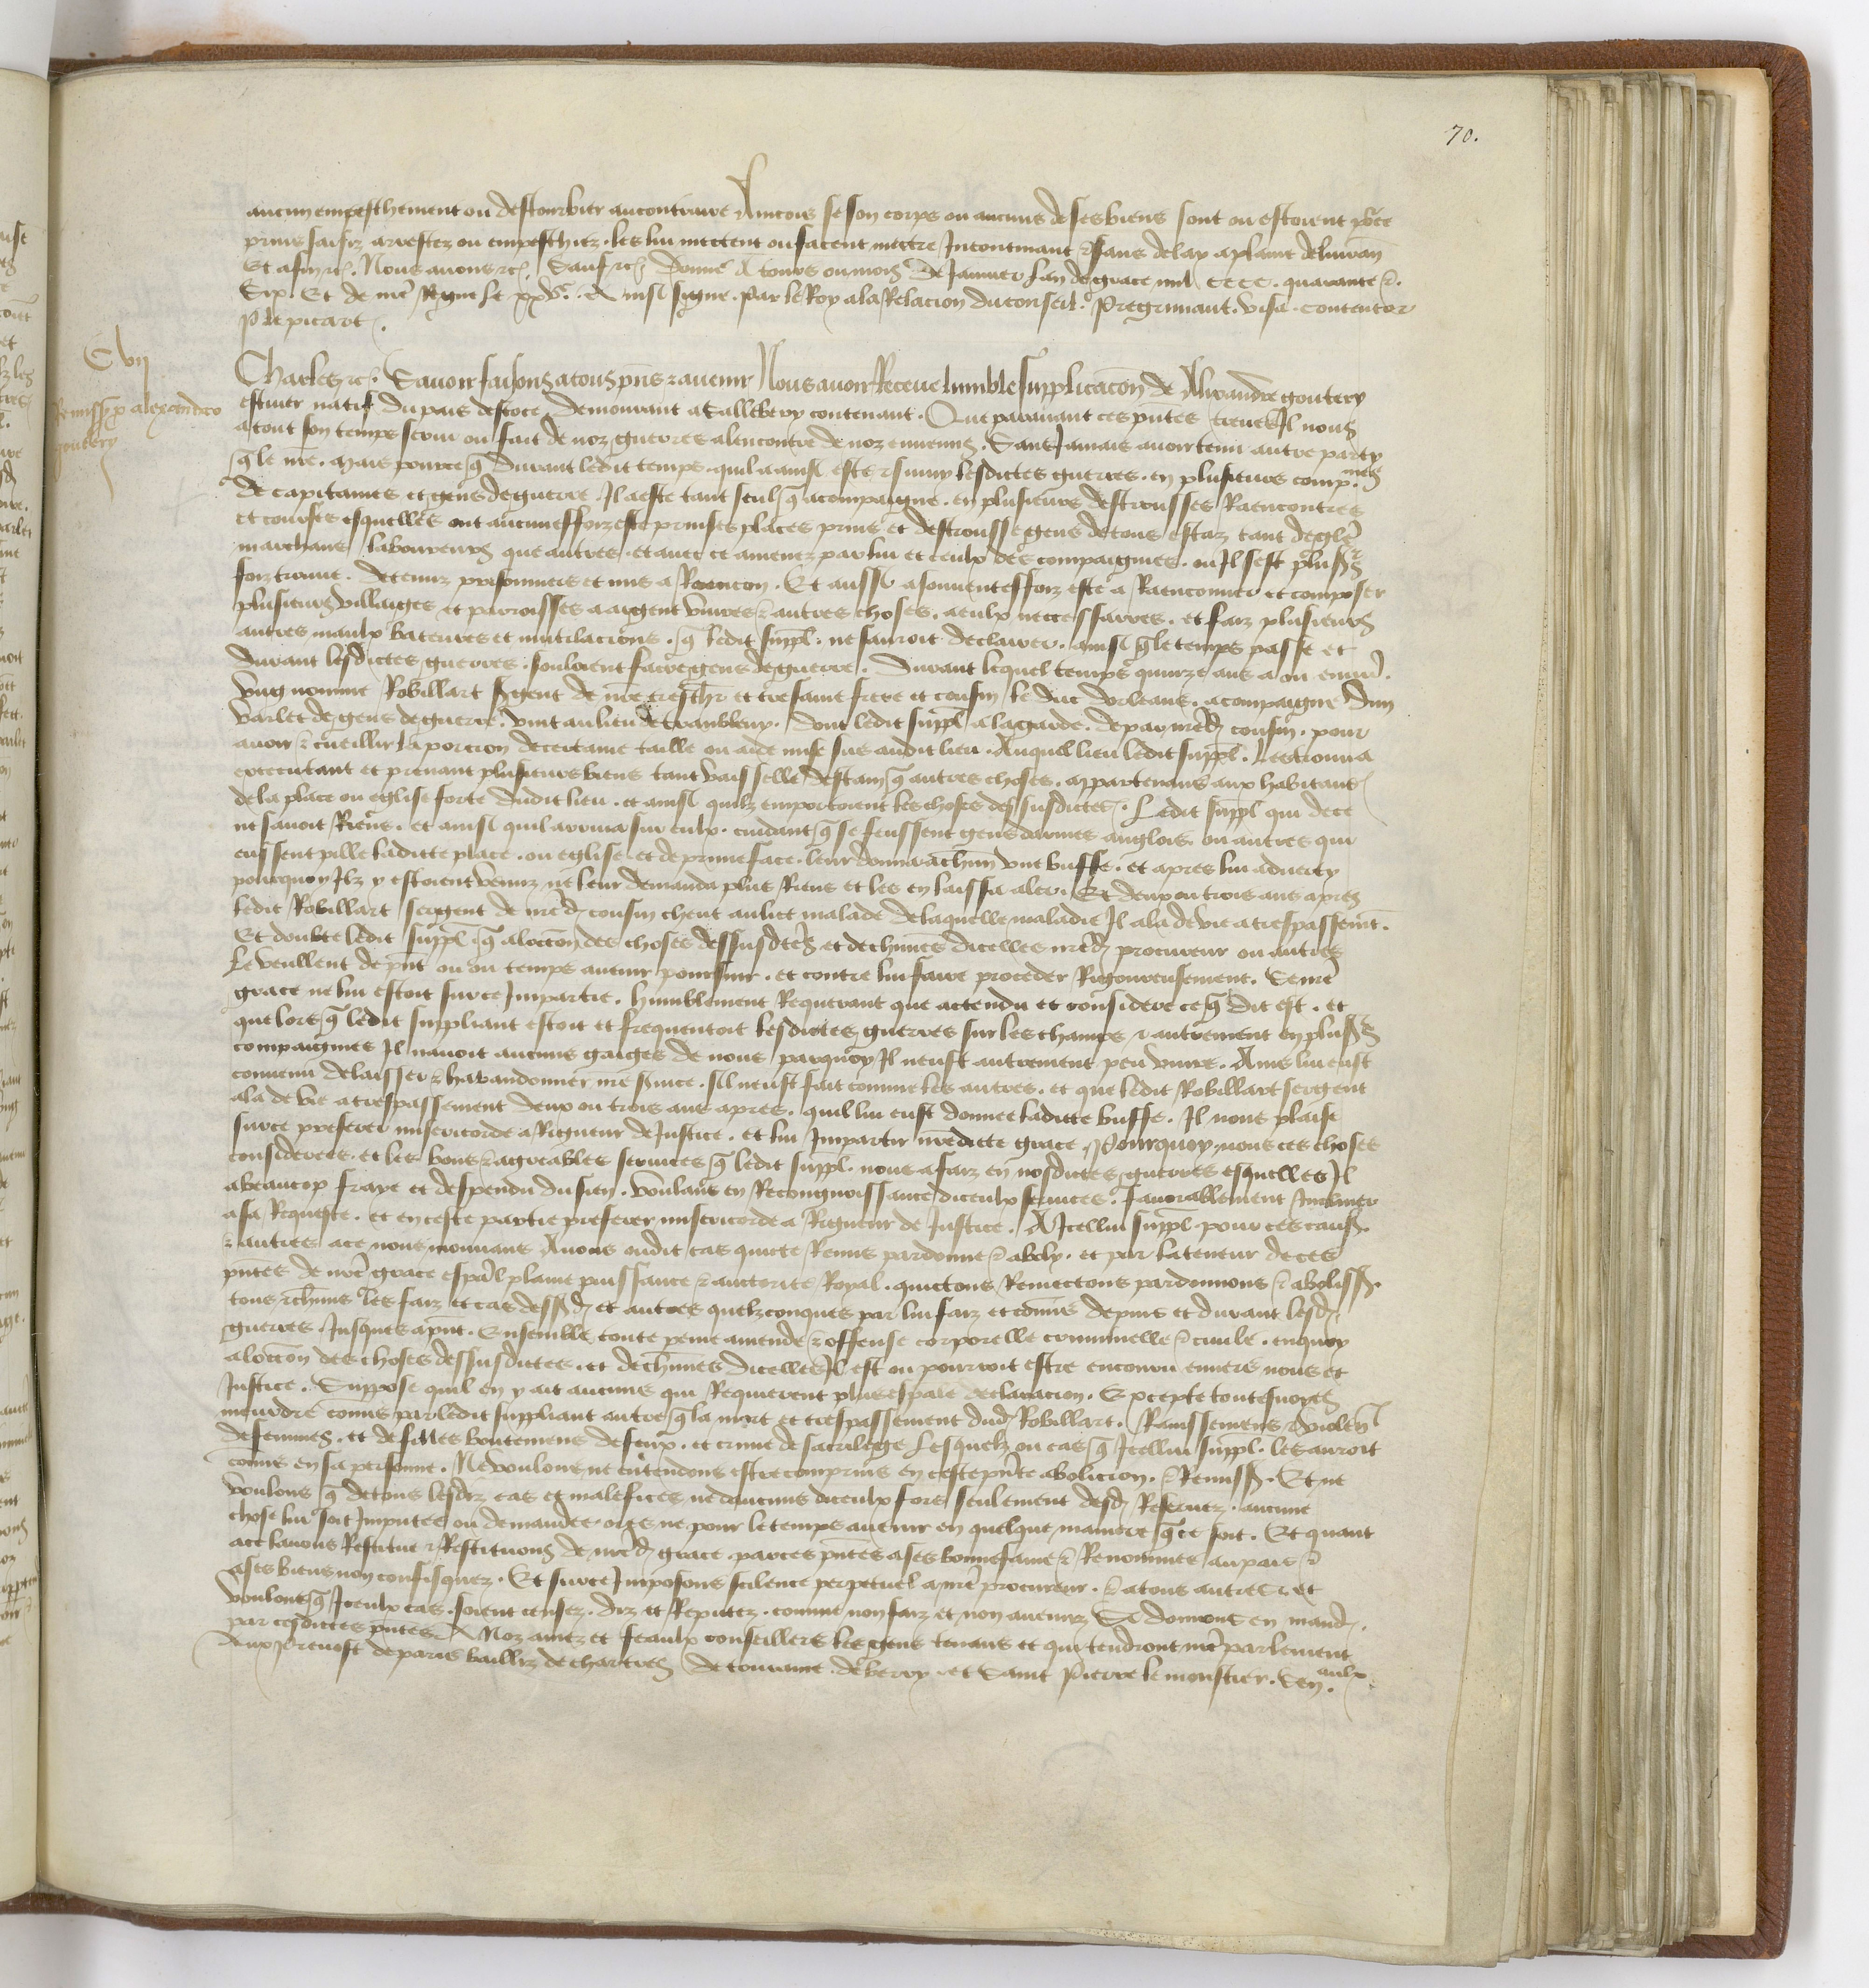 70.
aucun empeschement ou destourbier au contraire Aincois se son corps ou aucuns de ses biens sont ou estoient pource
prins saisiz arrestez ou empeschiez. les lui mectent ou facent mectre Incontinant & sans delay a plaine delivran
Et afin rc. Nous avons rc. Sauf rc. Donne A tours ou mois De Janvier lan de grace mil CCCC. quarante &.
Six. Et de nre Regne le xxve. Ainsi signe. Par le Roy a la Relacion du conseil. Pregrimaut. visa. contentor
P le picart.
C vii
Remiss. p alexandro
goutery
Charles rc. Savoir faisons a tous pns & avenir Nous avoir Receue lumble supplicacon de Alixandre goutery
escuier natif du pais descoce demourant a Sallebery contenant. Que paravant ces pntes treves Il nous
a tout son temps servi ou fait de noz guerres alencontre de noz ennemis. Sans Jamais avoir tenu autre party
q le nre. Mais pource q durant ledit temps. quil a ainsi este & suivy lesdictes guerres. en plusieurs comp.nies
de capitaines et gens de guerre. Il a este tant seul q acompaigne. en plusieurs destrousses Raencontres
et courses esquelles ont aucuneffoiz este prinses places prins et destrousse gens de tous estaz tant deglise
marchans laboureurs que autres. et avec ce amenez par lui et ceulx des compaignies. ou Il sest plus
foiz trouve. detenuz prisonniers et mis a Raencon. Et aussi a souventeffoiz este a Raenconner et composer
plusieurs villaiges et parroisses a argent vivres & autres choses. a eulx neccessaires. et faiz plusieurs
autres maulx bateures et mutilacions. q ledit suppl. ne sauroit declairer. ainsi q le temps passe et
durant lesdictes guerres. souloient faire gens de guerre. Durant lequel temps quinze ans a ou environ.
Ung nomme Robillart sgent de nre treschr et tresame frere et cousin le duc dorleans. acompaigne dun
varlet de gens de guerre. vint au lieu de . dont ledit suppl a la garde. de par nred cousin. pour
avoir & cueillir la porcion de certaine taille ou aide mise sus audit lieu. Auquel lieu ledit suppl. les trouva
executant et prenant plusieurs biens tant vaisselle destain q autres choses. appartenans aux habitans
de la place ou eglise forte dudit lieu. et ainsi quilz emportoient les choses dessusdictes. Ledit suppl qui de ce
ne savoit Riens. et ainsi quil arriva sur eulx. cuidant q se feussent gens darmes anglois ou autres qui
eussent pille ladicte place. ou eglise et de prime face. leur donna a chun une buffe. et apres lui adverty
pourquoy Ilz y estoient venuz ne leur demanda plus Riens et les en laissa aler. Et deux ou trois ans apres
ledit Robillart sergent de nred cousin cheut au lict malade de laquelle maladie Il ala de vie a trespassement.
Et doubte ledit suppl. q a loccon des choses dessusdtes et de chunes dicelles nred procureur ou autres
le veullent de pnt ou ou temps avenir poursuir. et contre lui faire proceder Rigoureusement. Se nre
grace ne lui estoit sur ce Impartie. humblement Requerant que actendu et considere ce q dit est. et
que lors q ledit suppliant estoit et frequentoit lesdictes guerres sur les champs & autrement en pluss
compaignies Il navoit aucuns gaiges de nous parquoy Il neust autrement peu vivre. Ains lui eust
convenu delaisser & habandonner nre service. sil neust fait comme les autres. et que ledit Robillart sergent
ala de vie a trespassement deux ou trois ans apres. quil lui eust donnee ladicte buffe. Il nous plaise
sur ce preferer misericorde a Rigueur de Justice. et lui Impartir nredicte grace. Pourquoy. nous ces choses
considerees. et les bons & agreables services q ledit suppl. nous a faiz en nosdictes guerres esquelles Il
a beaucop fraye et despendu du sien. voulans en Recongnoissance diceulx services. favorablement Incliner
a sa Requeste. et en ceste partie preferer misericorde a Rigueur de Justice. A Icellui suppl. pour ces causs.
& autres ace nous mouvans Avons oudit cas quicte Remis pardonne & aboly. et par la teneur de ces
pntes de nre grace espal plaine puissance & auctorite Royal. quictons Remectons pardonnons & abolisss.
tous & chuns les faiz et cas dessd et autres quelzconques par lui faiz et comis depuis et durant lesd
guerres. Jusques a pnt. Ensemble toute peine amende & offense corporelle criminelle & civile. en quoy
a loccon des choses dessusdictes. et de chunes dicelles Il est ou pourroit estre encouru envers nous et
Justice. Suppose quil en y ait aucuns qui Requierent plus espale declaracion. Excepte toutesvoyes
meurdre comis par ledit suppliant autre q la mort et trespassement dud Robillart. Ravissemens & violen
de femmes. et de filles boutemens de feux. et crime de sacrilege Lesquelz ou cas q Icellui suppl. les auroit
comis en sa personne. Ne voulons ne entendons estre comprins en ceste pnte abolicion. & Remiss. Et ne
voulons q de tous lesdiz cas et malefices ne daucuns diceulx fors seulement desd Reservez. aucune
chose lui soit Imputee ou demandee. ores ne pour le temps avenir en quelque maniere q ce soit. Et quant
ace lavons Restitue & Restituons de nred grace. par ces pntes a ses bonne fame & Renommee au pais &
a ses biens non confisquez. Et sur ce Imposons silence perpetuel a nre procureur. & a tous autres & et
voulons q Iceulx cas. soient censez. diz et Reputez. comme non faiz et non avenuz Si donnons en mand.
par cesdictes pntes A Noz amez et feaulx conseillers les gens tenans et qui tendront nre parlement
Aux Prevost de paris bailliz de chartres de touraine. de berry. et Saint Pierre le moustier. Sen.aulx.